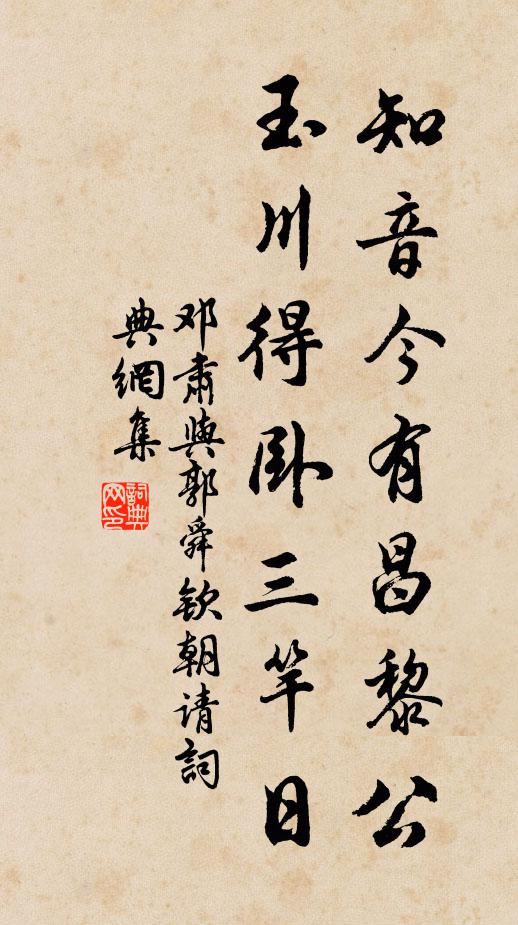 知音今有昌黎公
玉川得卧三竿日
邓肃與郭舜欽朝请詞
典網集
詞典网印